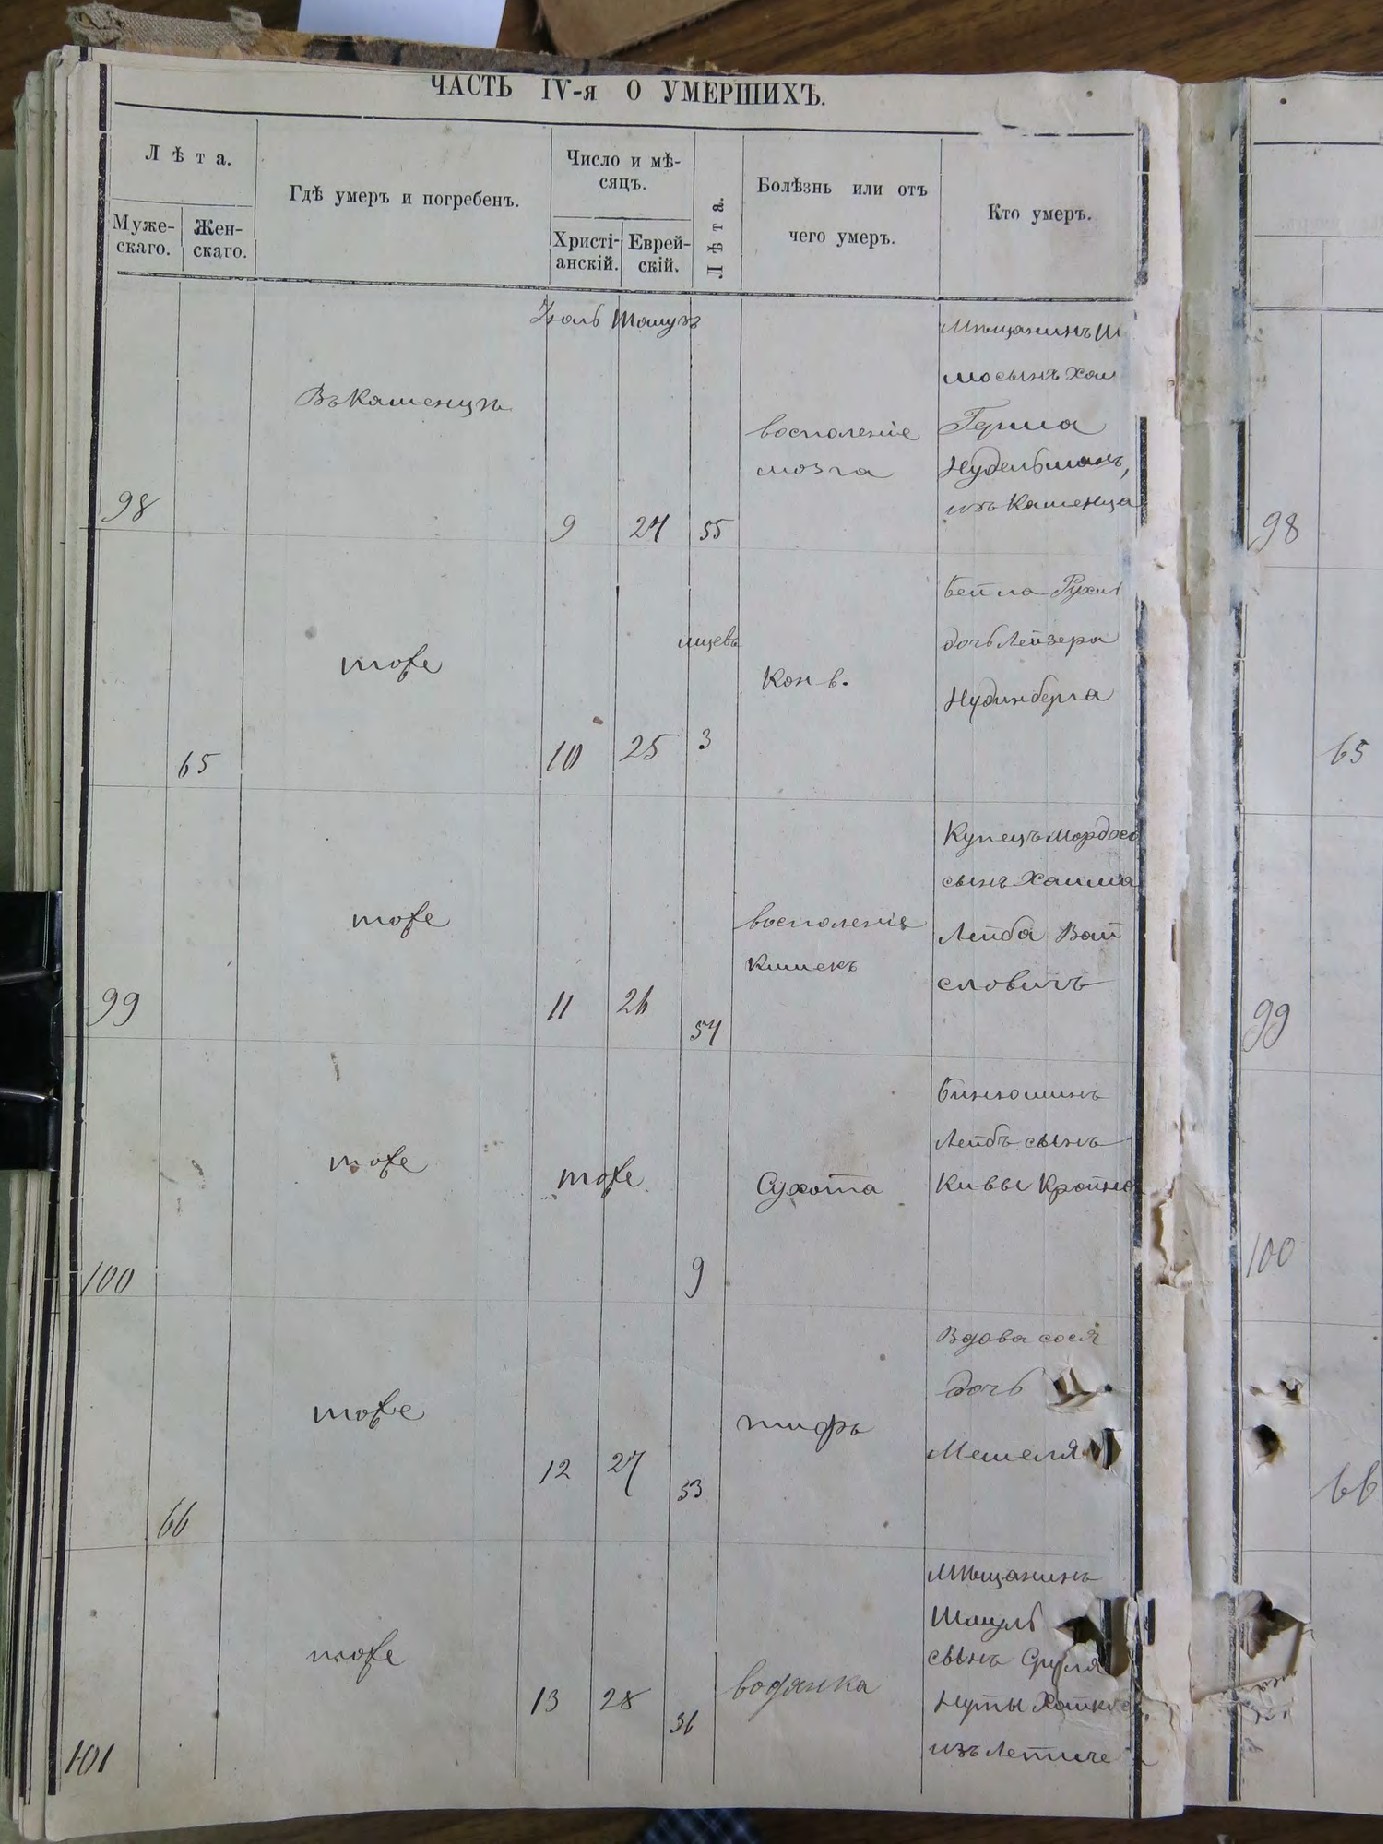 ЧАСТЬ IV-я О УМЕРШИХЪ.
Лѣта.
Муже-
скаго.
Жен-
скаго.
Гдѣ умеръ и погребенъ.
Число и мѣ-
сяцъ.
Христі-
анскій.
Еврей-
скій.
Лѣта.
Болѣзнь или отъ
чего умеръ.
Кто умеръ.
98
Въ Каменцѣ
Іюль Тамузъ
9 24 55
воспаленіе
мозга
Мѣщанинъ
сынъ
Герша
Нудельманъ,
изъ Каменца
98
65
тоже
10 25
мцевъ
3
Конв.
Бейла
дочь Лейзера
Нудинберга
65
99
тоже
11 26
54
воспаленіе
кишекъ
Купецъ Мордко
сынъ Хаима
Лейба Вай
словичъ
99
100
тоже
тоже
9
Сухота
Биньюминъ
Лейбъ сынъ
Киввы
100
66
тоже
12 27
53
тифъ
Вдова Сося
дочь
Мешеля
66
101
тоже
13 28
36
водянка
Мѣщанинъ
Шмуль
сынъ Сруля
Нуты
изъ Летиче